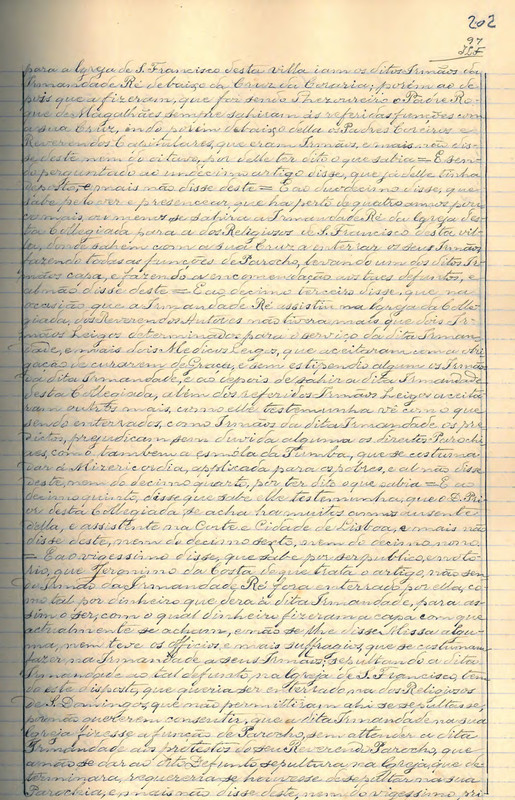 202
97
para a Igreja de S. Francisco desta villa iam os ditos Irmãos da
Irmandade Ré debaixo da Cruz da Coraria; porém ao de
pois que a fizeram, que foi sendo Thezoureiro o Padre Ro-
que de Magalhães sempre sahiram às referidas funções com
a sua Cruz, indo porém debaixo della os Padres Coreiros e
Reverendos Capitulares, que eram Irmãos, e mais não dis-
se deste nem do oitavo, por delle ter dito o que sabia = E sen-
do perguntado ao undecimo artigo disse, que já delle tinha
deposto, e mais não disse deste = E ao duodecimo disse, que
sabe pelo ver e presencear, que ha perto de quatro annos pou-
co mais, ou menos se sahira a Irmandade Ré da Igreja des-
ta Collegiada para a dos Religiosos de S. Francisco desta vil-
la, donde sahem com a sua Cruz a enterrar os seus Irmãos
fazendo todas as funções de Parocho, levando um dos ditos Ir-
mãos capa, e fazendo a encomendação aos taes defuntos, e
al não disse deste = E ao decimo terceiro disse que na
occasião, que a Irmandade Ré assistiu na Igreja da Colle-
giada, os Reverendos Autores não tiveram mais que dois Ir-
mãos Leigos determinados para o serviço da dita Irman-
dade, e mais dois Medicos Leigos, que aceitaram com a obri-
gação de curarem de Graça, e sem estipendio algum os Irmãos
da dita Irmandade, e ao depois de sahir a dita Irmandade
desta Collegiada, alem dos referidos Irmãos Leigos aceita-
ram outros mais, como elle testemunha vê com o que
sendo enterrados, como Irmãos da dita Irmandade os pre-
dictos, prejudicam sem duvida alguma os direitos Parochi-
aes, como tambem a esmola da Tumba, que se costuma
dar á Mizericordia, applicada para os pobres, e al não disse
deste, nem do decimo quarto, por ter dito o que sabia = E ao
decimo quinto, disse que sabe elle testemunha, que o D. Pri-
or desta Collegiada se acha ha muitos annos ausente
della, e assistente na Corte e Cidade de Lisboa, e mais não
disse deste, nem do decimo sexto, nem do decimo nono
= E ao vigessimo disse, que sabe por ser publico, e noto-
rio, que Jeronimo da Costa de que trata o artigo, não sen-
do Irmão da Irmandade Ré fora enterrado por ella, co-
mo tal por dinheiro que dera á dita Irmandade, para as-
sim o ser, com o qual dinheiro fizeram a capa com que
actualmente se acham, e não se lhe disse Missa algu-
ma, nem teve os officios, e mais suffragios, que se costumam
fazer na Irmandade a seus Irmãos; sepultando a dita
Irmandade ao tal defunto, na Igreja de S. Francisco, ten-
do este disposto, que queria ser enterrado na dos Religiosos
de S. Domingos, que não permittiram ahi se sepultasse,
por não quererem consentir, que a dita Irmandade na sua
Igreja fizesse a função de Parocho, sem attender a dita
Irmandade aos protestos do seu Reverendo Parocho, que
a não se dar ao dito Defunto sepultura na Igreja, que de-
terminara, requereria se houvesse de sepultar na sua
Parochia, e mais não disse deste, nem do vigessimo, pri-